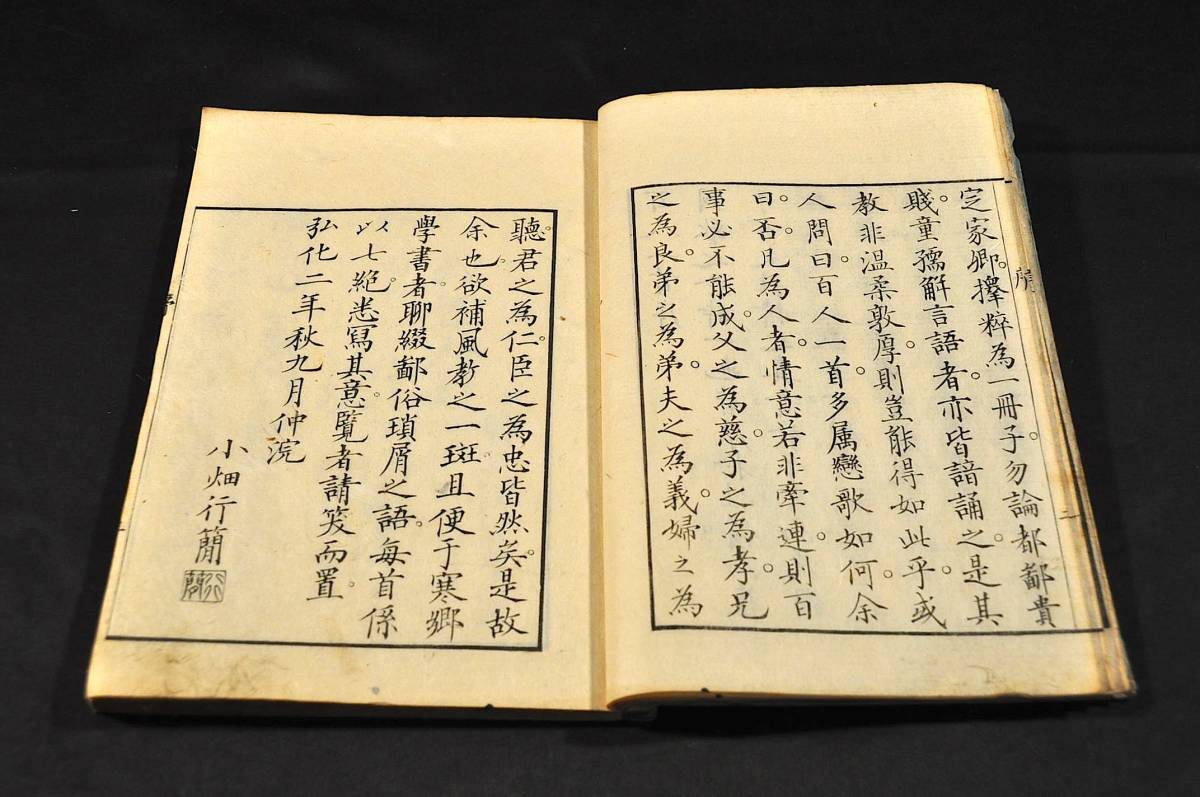 定家卿。擇粹為一冊子。勿論都鄙貴
賤。童孺解言語者。亦皆諳誦之。是其
教非溫柔敦厚。則豈能得如此乎。或
人問曰。百人一首。多属戀歌如何。余
曰。否。凡為人者。情意若非牽連。則百
事必不能成。父之為慈。子之為孝。兄
之為良。弟之為弟。夫之為義。婦之為
聽。君之為仁。臣之為忠。皆然矣。是故
余也欲補風教之一斑。且便于寒鄉
學書者。聊綴鄙俗瑣屑之語。每首係
以七絶。悉寫其意。覽者請笈而置。
弘化二年秋九月仲浣
小畑行簡